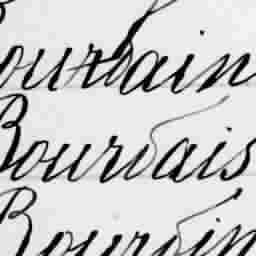 ourdain
Bourdais
Bourdin